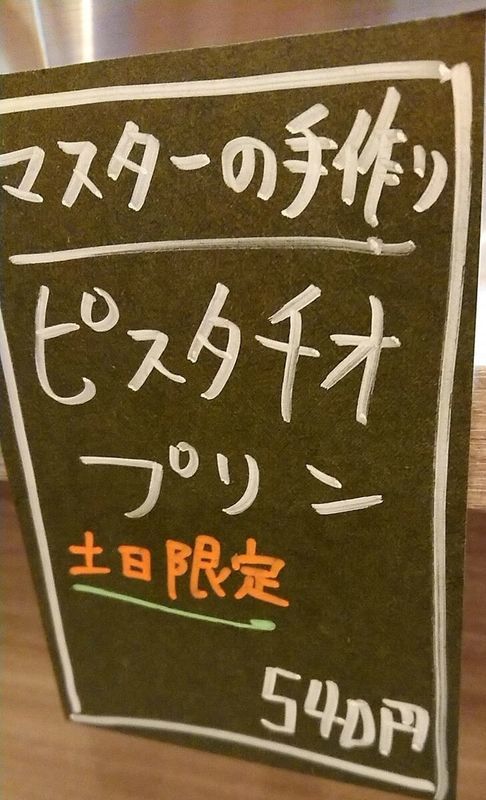 マスターの手作り
ピスタチオ
プリン
土日限定
540円